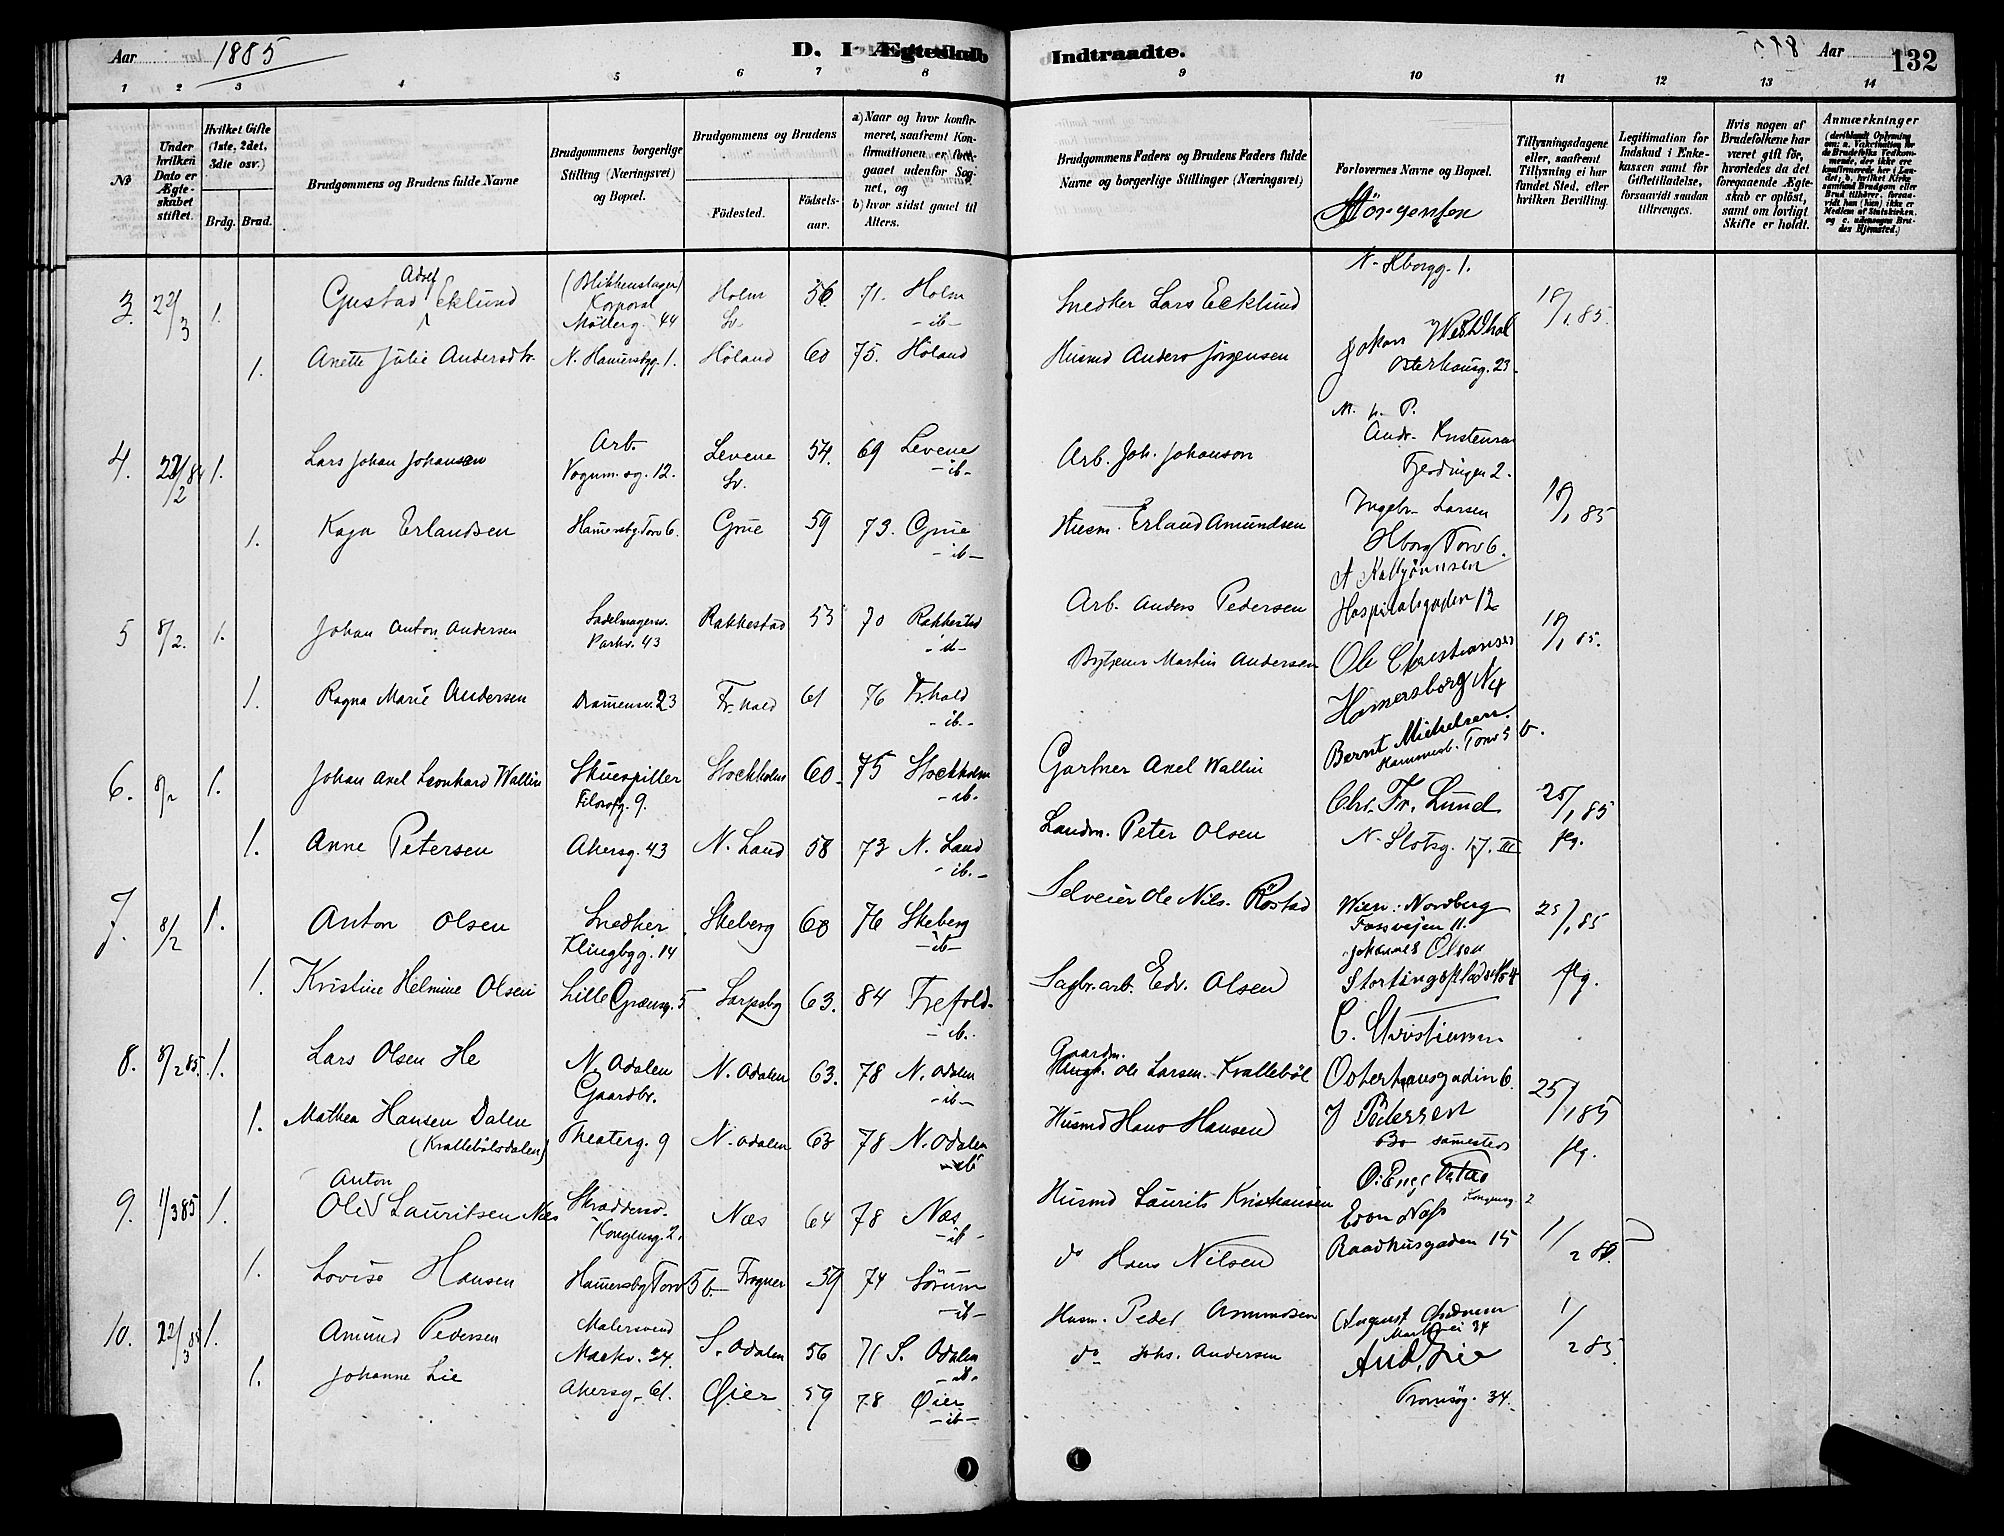 Aar 1885
D. I Ægteskab Indtraadte.
Aar 132
1 2 3 4 5 6 7 8 9 10 11 12 13 14
No
Under hvilken Dato er Ægteskabet stiftet.
Hvilket Gifte (1ste, 2det, 3die osv.)
Brdg. Brud.
Brudgommens og Brudens fulde Navne
Brudgommens borgerlige Stilling (Næringsvei) og Bopæl.
Brudgommens og Brudens
Födested. Födsels-aar.
a) Naar og hvor konfirmeret, saafremt Konfirmationen er foregaaet udenfor Sognet, og
b) hvor sidst gaaet til Alters.
Brudgommens Faders og Brudens Faders fulde Navne og borgerlige Stillinger (Næringsvei)
Forlovernes Navne og Bopæl.
Tillysningsdagene eller, saafremt Tillysning ei har fundet Sted, efter hvilken Bevilling.
Legitimation for Indskud i Enkekassen samt for Giftetilladelse, forsaavidt saadan tiltrænges.
Hvis nogen af Brudefolkene har været gift før, hvorledes da det foregaaende Ægteskab er oplöst, samt om lovligt Skifte er holdt.
Anmærkninger
N. Hborgg. 1.
3. 22/3 1. Gustav Adolf Eklund (Blikkenslager) Korporal Møllerg. 44 Holm Sv. 56 71. Holm -ib- Snedker Lars Ecklund 18/1 85.
1. Anette Julie Andersdtr. N. Hamersbgg. 1. Høland 60 75. Høland Husmd Anders Jørgensen Johan Westdhal Osterhausg. 23.
4. 22/2 84 1. Lars Johan Johansen Arb. Vognm.sg. 12. Levene Sv. 54. 69 Levene -ib- Arb. Joh. Johanson Andr. Kristensen Fjerdingen 2.
1. Kaja Erlandsen Hamersbg. Torv 6. Grue 59 73. Grue -ib- Husm. Erland Amundsen Ingebr. Larsen Hborg Torv 6. 18/1 85
5 8/2. 1. Johan Anton Andersen Sadelmagersv. Parkv. 43 Rakkestad 53 70 Rakkestad -ib- Arb. Anders Pedersen Hospitalsgaden 12 18/1 85.
1. Ragna Marie Andersen Dramensv. 23 Fr.hald 61 76 Fr.hald -ib- Martin Andersen Ole Christiansen Hamersborg N 4
6. 8/2 1. Johan Axel Leonhard Wallin Skuespiller Filosofg. 9. Stockholm 60 75 Stockholm -ib. Gartner Axel Wallin Bernt Michelsen. Hammersb. Torv 5 b.
1. Anne Petersen Akersg. 43 N. Land 58 73 N. Land -ib.- Landm. Peter Olsen Chr. Fr. Lund N. Slotsg. 17. III 25/1 85 flg.
7. 8/2 1. Anton Olsen Snedker Klingbgg. 14 Skeberg 60 76 Skeberg -ib- Selveier Ole Nils. Röstad Wien: Nordberg Fossvejen 11. 25/1 85
1. Kristine Helmine Olsen Lille Grænsg. 5 Sarpsbg 63. 84 Trefold. -ib. Sagbr.arb. Edv. Olsen Johannes Olsen Stortingsplads No 4 flg.
8. 8/2 85. 1. Lars Olsen He N. Odalen Gaardbr. N. Odalen 63. 78 N. Odalen -ib- Gaardm. Ole Larsen Krallebøl C. Christiansen Osterhausgaden 6. 25/1 85
1. Mathea Hansen Dalen (Krallebølsdalen) Theaterg. 9 N. Odalen 63 78 N. Odalen -ib Husmd Hans Hansen J Pedersen Bo sammesteds flg.
9. 1/3 85 1. Ole Anton Lauritsen Næs Skrædersv. Kongensg. 2. Næs 64 78 Næs -ib- Husmd Laurits Kristiansen O. Engebretstad Kongensg 2
1. Lovise Hansen Hamersbg Torv 5 b. Frogner 59 74 Sørum -ib- do Hans Nilsen Raadhusgaden 15 1/2 85.
10. 22/3 85 1. Amund Pedersen Malersvend Markv. 34. S. Odalen 56 71 S. Odalen -ib- Husm. Peder Ammundsen August Markvei 34 1/2 85.
1. Johanne Lie Akersg. 61. Øier 59 78 Øier -ib- do Johs. Andersen And. Lie Tromsøg. 34.